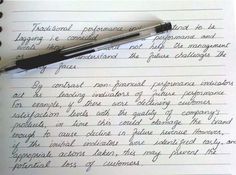 Traditional performance tend to be
lagging i.e. performance and
not help the management
understand the future challenges the
faces.
By contrast non-financial performance indicators
act as leading indicators of future performance.
For example, if there were declining customer
satisfaction levels with the quality of company's
products, in time this could damage the brand
enough to cause decline in future revenue. However,
if the initial indicators were identified early, and
appropriate actions taken, this may prevent the
potential loss of customers.